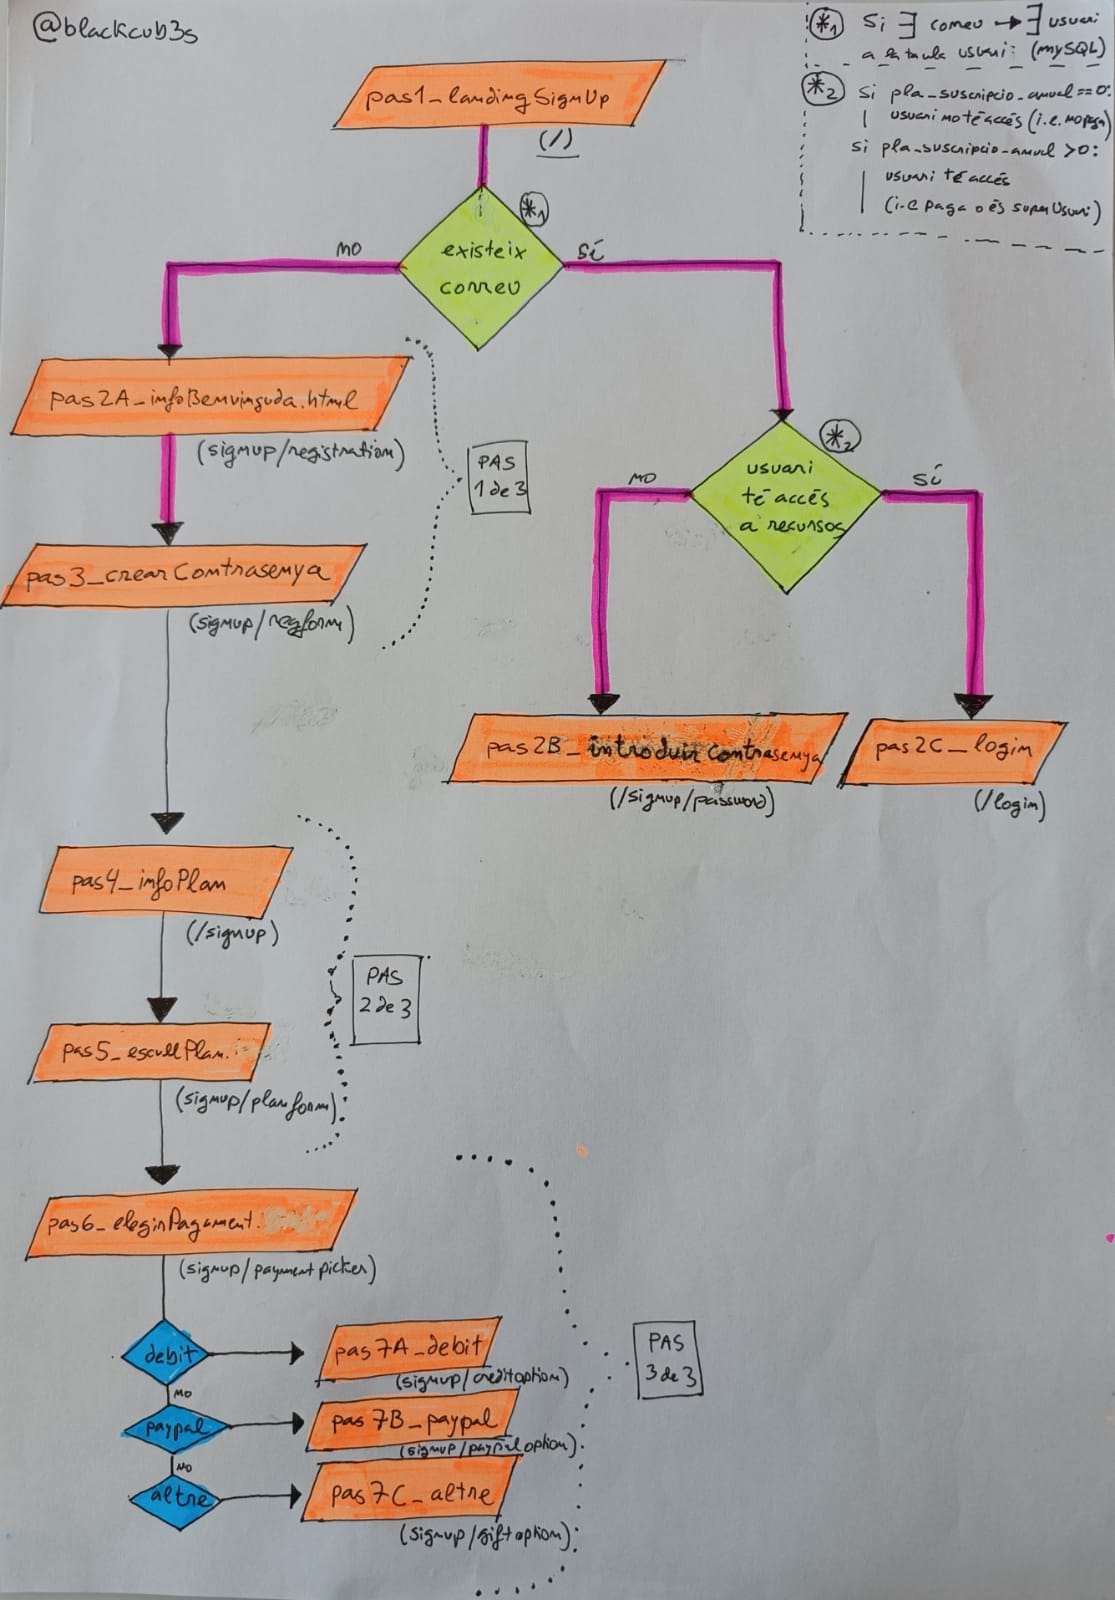 @blackcub3s
*1 Si ∃ correu → ∃ usuari
a la taula usuari: (mySQL)
*2 si pla_suscripcio_anual == 0:
usuari no té accés (i.e. no paga)
si pla_suscripcio_anual > 0:
usuari té accés
(i.e paga o és superUsuari)
pas1_landingSignUp
(/)
*1
existeix
correu
NO
SÍ
pas2A_infoBenvinguda.html
(signup/registration)
PAS
1 de 3
pas3_crearContrasenya
(signup/regform)
*2
usuari
té accés
a recursos
NO
SÍ
pas2B_introduirContrasenya
(/signup/password)
pas2C_login
(/login)
pas4_infoPlan
(/signup)
PAS
2 de 3
pas5_escullPlan.
(signup/planform)
pas6_elegirPagament.
(signup/paymentpicker)
debit
pas7A_debit
(signup/creditoption)
NO
paypal
pas7B_paypal
(signup/paypaloption)
NO
altre
pas7C_altre
(signup/giftoption)
PAS
3 de 3